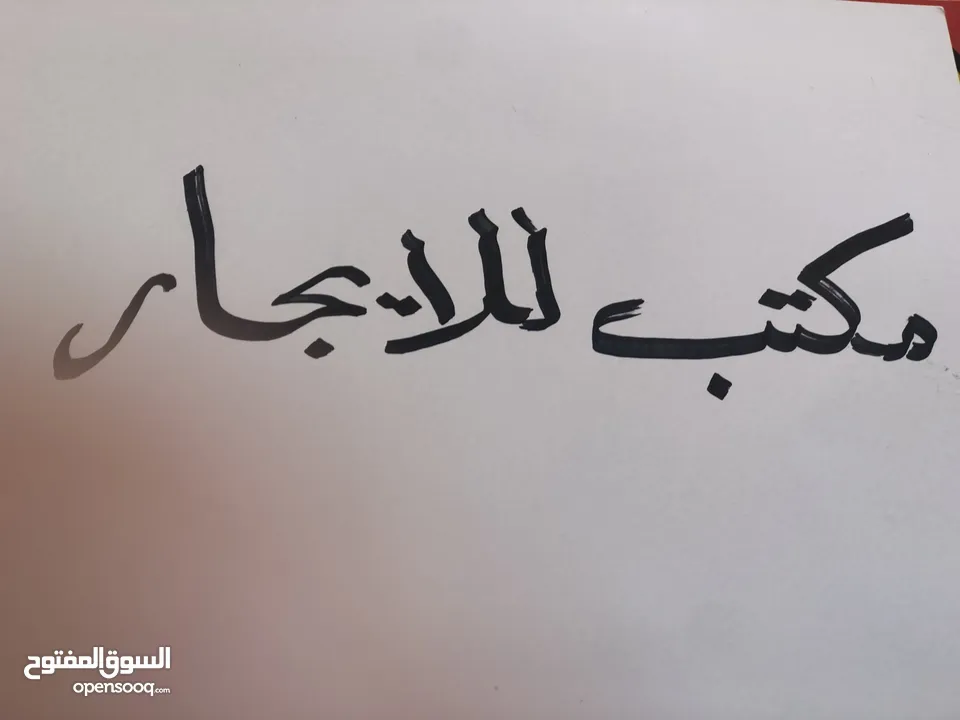 مكتب للايجار
السوق المفتوح
opensooq.com